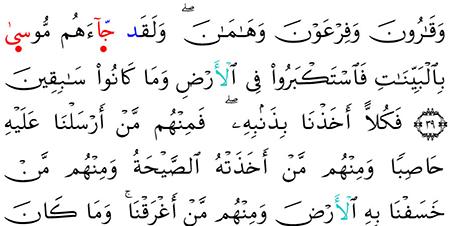 وَقَٰرُونَ وَفِرْعَوْنَ وَهَٰمَٰنَ ۖ وَلَقَد جَّآءَهُم مُّوسَىٰ
بِالْبَيِّنَٰتِ فَاسْتَكْبَرُوا۟ فِى الْأَرْضِ وَمَا كَانُوا۟ سَٰبِقِينَ
﴿٣٩﴾ فَكُلًّا أَخَذْنَا بِذَنۢبِهِۦ ۖ فَمِنْهُم مَّنْ أَرْسَلْنَا عَلَيْهِ
حَاصِبًا وَمِنْهُم مَّنْ أَخَذَتْهُ الصَّيْحَةُ وَمِنْهُم مَّنْ
خَسَفْنَا بِهِ الْأَرْضَ وَمِنْهُم مَّنْ أَغْرَقْنَا ۚ وَمَا كَانَ